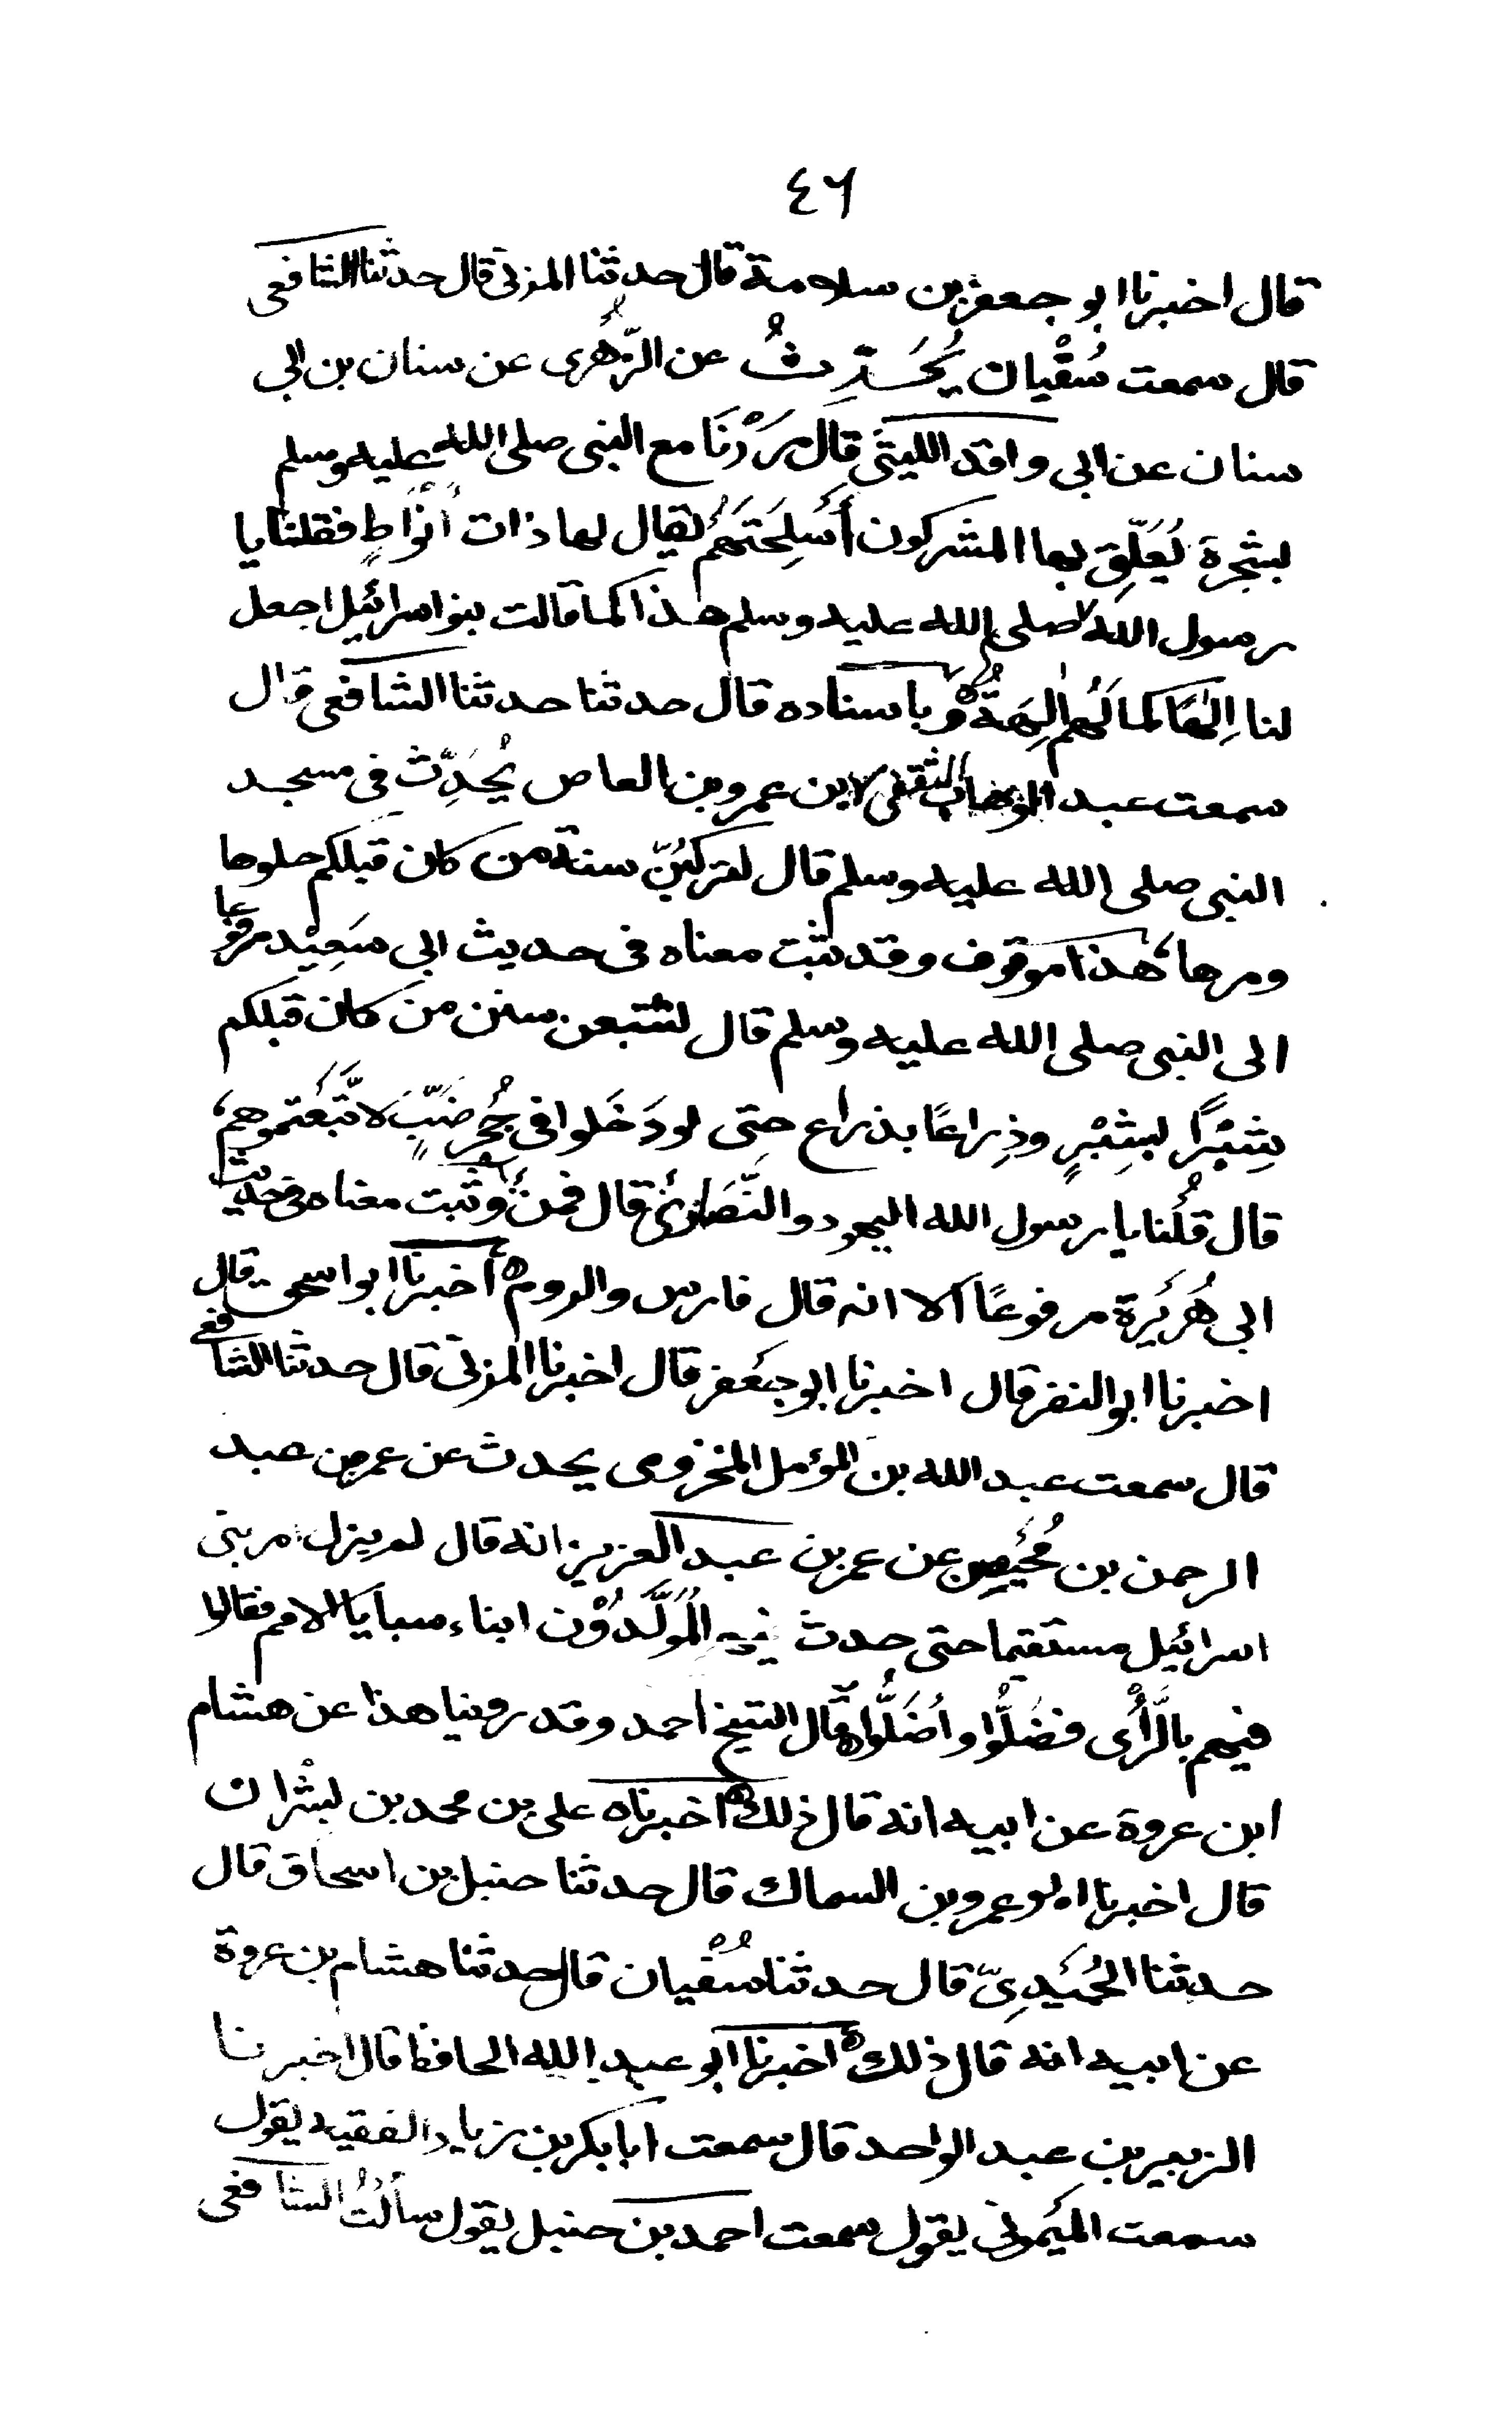 ٤٦
قال اخبرنا ابو جعفر بن سلامة قال حدثنا المزنى قال حدثنا الشافعى
قال سمعت سُفْيان يُحَدِّثُ عن الزُّهرى عن سنان بن ابى
سنان عن ابى واقد الليثى قال مررْنَا مع النبى صلى الله عليه وسلم
بشجرة يُعَلِّق بها المشركون أَسْلِحَتَهُم يقال لها ذات أنْوَاطٍ فقلنا يا
رسول الله صلى الله عليه وسلم هذا كما قالت بنو اسرائيل اجعل
لنا اِلٰهًا كما لَهُم اٰلِهَةٌ وباسناده قال حدثنا حدثنا الشافعى قال
سمعت عبد الوهاب الثقفى لابن عمرو بن العاص يُحَدِّث فى مسجد
النبى صلى الله عليه وسلم قال لتركبُنّ سنة من كان قبلكم حلوها
ومرها هذا موقوف وقد ثبت معناه فى حديث ابى سَعِيْد مرفوعا
الى النبى صلى الله عليه وسلم قال لتتبعن سنن من كان قبلكم
شِبْرًا بشِبْرٍ وذِراعًا بذراع حتى لو دَخَلوا فى جُحْرِ ضَبٍّ لاتَّبَعْتموهم
قال قُلْنا يا رسول الله اليهود والنَّصَارىٰ قال فمن وثبت معناه فى حديث
ابى هُرَيْرة مرفوعًا الا انه قال فارس والروم أخبرنا ابو اسحق قال
اخبرنا ابو النضر قال اخبرنا ابو جعَفر قال اخبرنا المزنى قال حدثنا الشافعى
قال سمعت عبد الله بن المؤمل المخزومى يحدث عن عمر بن عبد
الرحمن بن مُحَيْصِن عن عمر بن عبد العزيز انه قال لم يزل امر بنى
اسرائيل مستقيما حتى حدث فيهم المُوَلَّدُوْن ابناء سبايا الامم فقالوا
فيهم بالرَّأْى فضَلُّوا واَضَلُّوا قال الشيخ احمد وقد روينا هذا عن هشام
ابن عروة عن ابيه انه قال ذلك اخبرناه على بن محمد بن بشْران
قال اخبرنا ابو عمرو بن السماك قال حدثنا حنبل بن اسحاق قال
حدثنا الحُمَيْدِىّ قال حدثنا سُفْيان قال حدثنا هشام بن عروة
عن ابيه انه قال ذلك اخبرنا ابو عبد الله الحافظ قال اخبرنا
الزبير بن عبد الواحد قال سمعت ابا بكر بن زياد الفقيه يقول
سمعت الميَمونى يقول سمعت احمد بن حنبل يقول سألتُ الشافعى